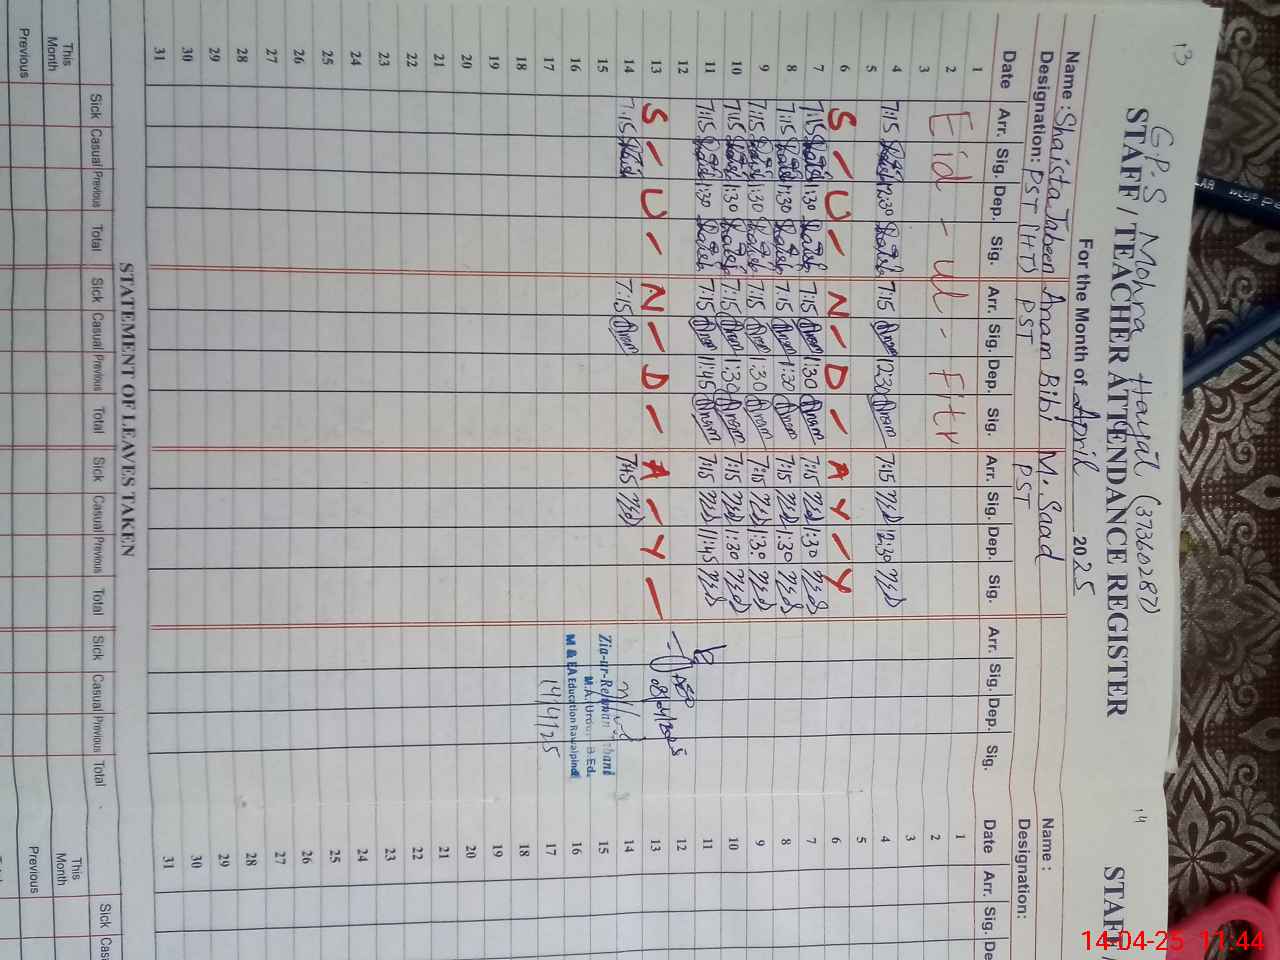 13
G.P.S Mohra Hayal (37360287)
STAFF / TEACHER ATTENDANCE REGISTER
For the Month of April 2025
Name : Shaista Jabeen Anam Bibi M. Saad
Designation: PST (HT) PST PST
Date Arr. Sig. Dep. Sig. Arr. Sig. Dep. Sig. Arr. Sig. Dep. Sig. Arr. Sig. Dep. Sig.
1
2 Eid - ul - Fitr
3
4 7:15 12:30 7:15 Anam 12:30 Anam 7:15 12:30
5
6 S - U - N - D - A Y - Y
7 7:15 1:30 7:15 Anam 1:30 Anam 7:15 1:30
8 7:15 1:30 7:15 Anam 1:30 Anam 7:15 1:30
9 7:15 1:30 7:15 Anam 1:30 Anam 7:15 1:30
10 7:15 1:30 7:15 Anam 1:30 Anam 7:15 1:30
11 7:15 1:30 7:15 Anam 11:45 Anam 7:15 11:45
12
13 S - U - N - D - A - Y -
14 7:15 7:15 Anam 7:45
AEO
08/04/2025
15
16
17
18
19
20
21
22
23
24
25
26
27
28
29
30
31
Zia-ur-Rehman
M.A (Urdu) B.Ed.
M & EA Education Rawalpindi
14/4/25
STATEMENT OF LEAVES TAKEN
Sick Casual Previous Total Sick Casual Previous Total Sick Casual Previous Total Sick Casual Previous Total
This Month
Previous
14
STAFF /
Name :
Designation:
Date Arr. Sig. De
1
2
3
4
5
6
7
8
9
10
11
12
13
14
15
16
17
18
19
20
21
22
23
24
25
26
27
28
29
30
31
Sick Cas
This Month
Previous
14-04-25 11:44